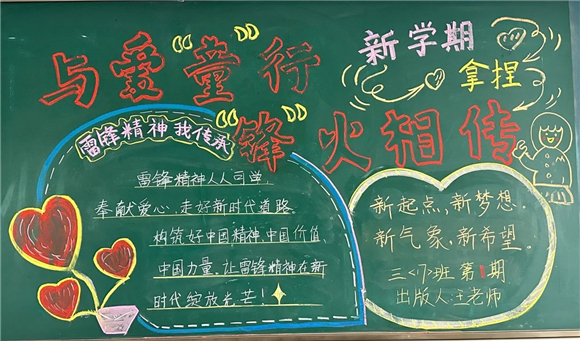 与爱“童”行
“锋”火相传
新学期
拿捏
雷锋精神我传承
雷锋精神人人可学,
奉献爱心,走好新时代道路,
构筑好中国精神,中国价值、
中国力量,让雷锋精神在新
时代绽放光芒!
新起点,新梦想.
新气象,新希望.
三<7>班 第1期
出版人:王老师